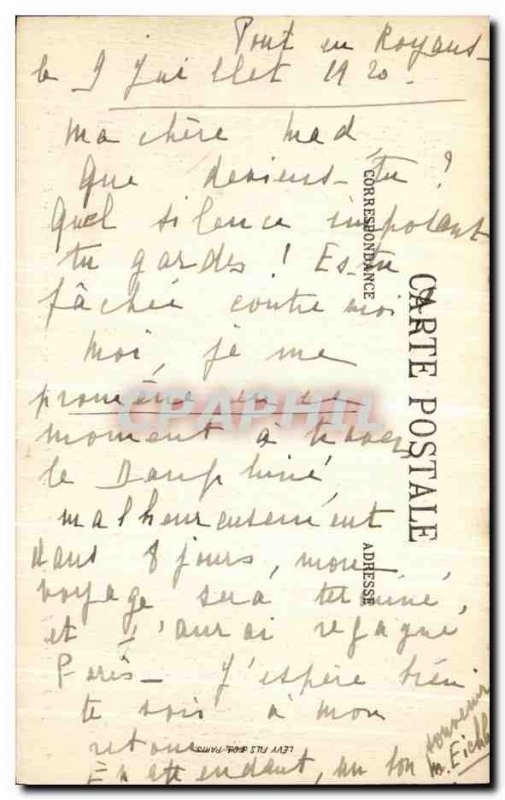 Pont en Royans_
le 9 Juillet 1920.
Ma chère Mad,
Que deviens-tu ?
Quel silence imposant
tu gardes ! Es-tu
fâchée contre moi ?
Moi, je me
promène en ce
moment à travers
le Dauphiné,
malheureusement
dans 8 jours, mon
voyage sera terminé,
et j'aurai regagné
Paris_ J'espère bien
te voir à mon
retour
En attendant, un bon
souvenir
M. Eichl
CORRESPONDANCE
CARTE POSTALE
ADRESSE
LÉVY FILS & Cie, PARIS
CPAPHIL